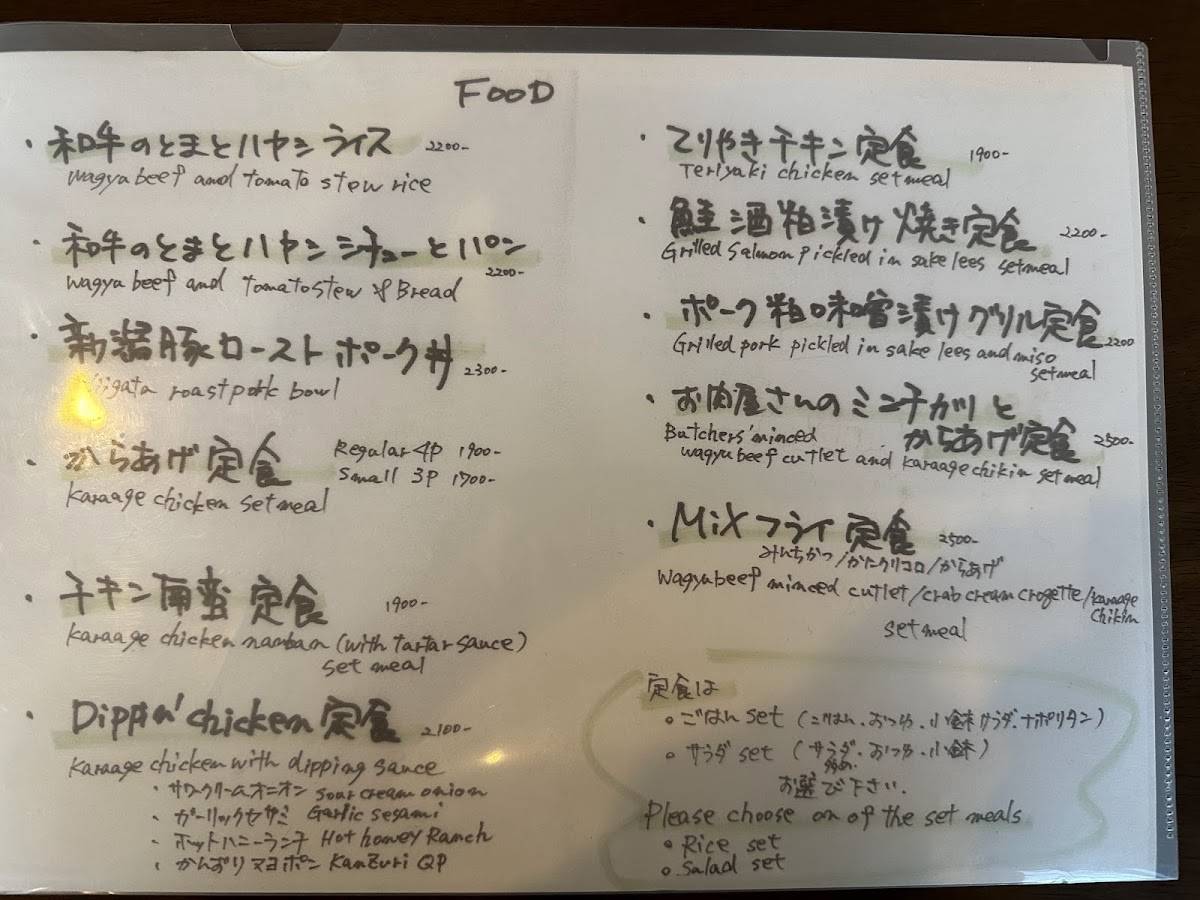 FOOD
・和牛のとまとハヤシライス 2200-
wagyu beef and tomato stew rice
・和牛のとまとハヤシシチューとパン
2200-
wagyu beef and tomato stew & Bread
・新潟豚ローストポーク丼 2300-
iigata roast pork bowl
・からあげ定食 Regular 4P 1900-
Small 3P 1700-
karaage chicken set meal
・チキン南蛮定食 1900-
karaage chicken namban (with tartar sauce)
set meal
・Dippin' chicken 定食 2100-
karaage chicken with dipping sauce
・サワークリームオニオン sour cream onion
・ガーリックセサミ Garlic sesami
・ホットハニーランチ Hot honey Ranch
・かんずりマヨポン KanZuri QP
・てりやきチキン定食 1900-
Teriyaki chicken set meal
・鮭酒粕漬け焼き定食 2200-
Grilled Salmon pickled in sake lees set meal
・ポーク粕味噌漬けグリル定食 2200
Grilled pork pickled in sake lees and miso
set meal
・お肉屋さんのミンチカツと
からあげ定食 2500-
Butchers' minced
wagyu beef cutlet and karaage chikin set meal
・MiX フライ定食 2500-
みんちかつ/かにクリコロ/からあげ
wagyu beef minced cutlet/crab cream crogette/karaage
chikin
set meal
定食は
○ごはん set (ごはん、おつゆ、小鉢、サラダ、ナポリタン)
○サラダ set (サラダ、おつゆ、小鉢)
多め
お選び下さい。
Please choose on of the set meals
○Rice set
○Salad set